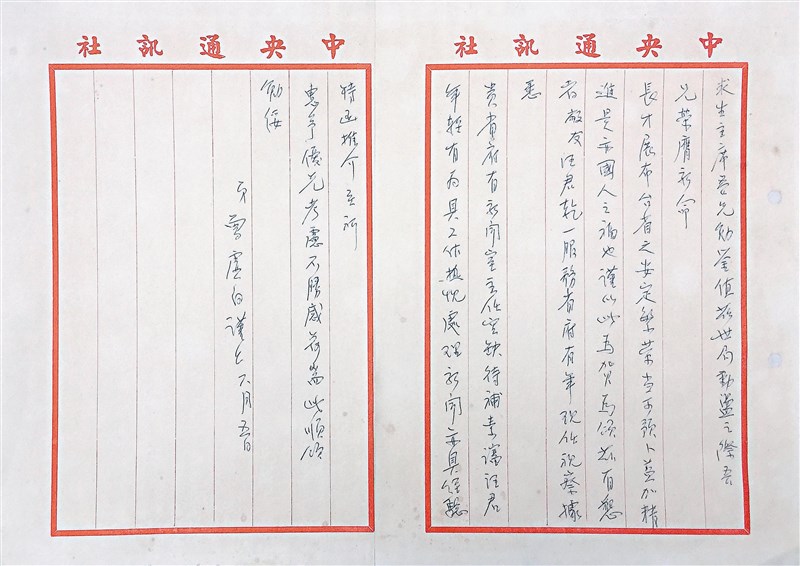 中央通訊社
求生主席吾兄勛鑒值茲世局動盪之際吾
兄榮膺新命
長才展布台省之安定繁榮當可預卜益加精
進是亦國人之福也謹以此為賀為頌茲有懇
者敝友汪君乾一服務省府有年現任視察據
悉
貴省府有新聞室主任空缺待補素諗汪君
年輕有為具工作熱忱處理新聞亦具經驗
中央通訊社
特函推介至祈
惠予優先考慮不勝感荷耑此順頌
勛綏
弟曾虛白謹上六月五日